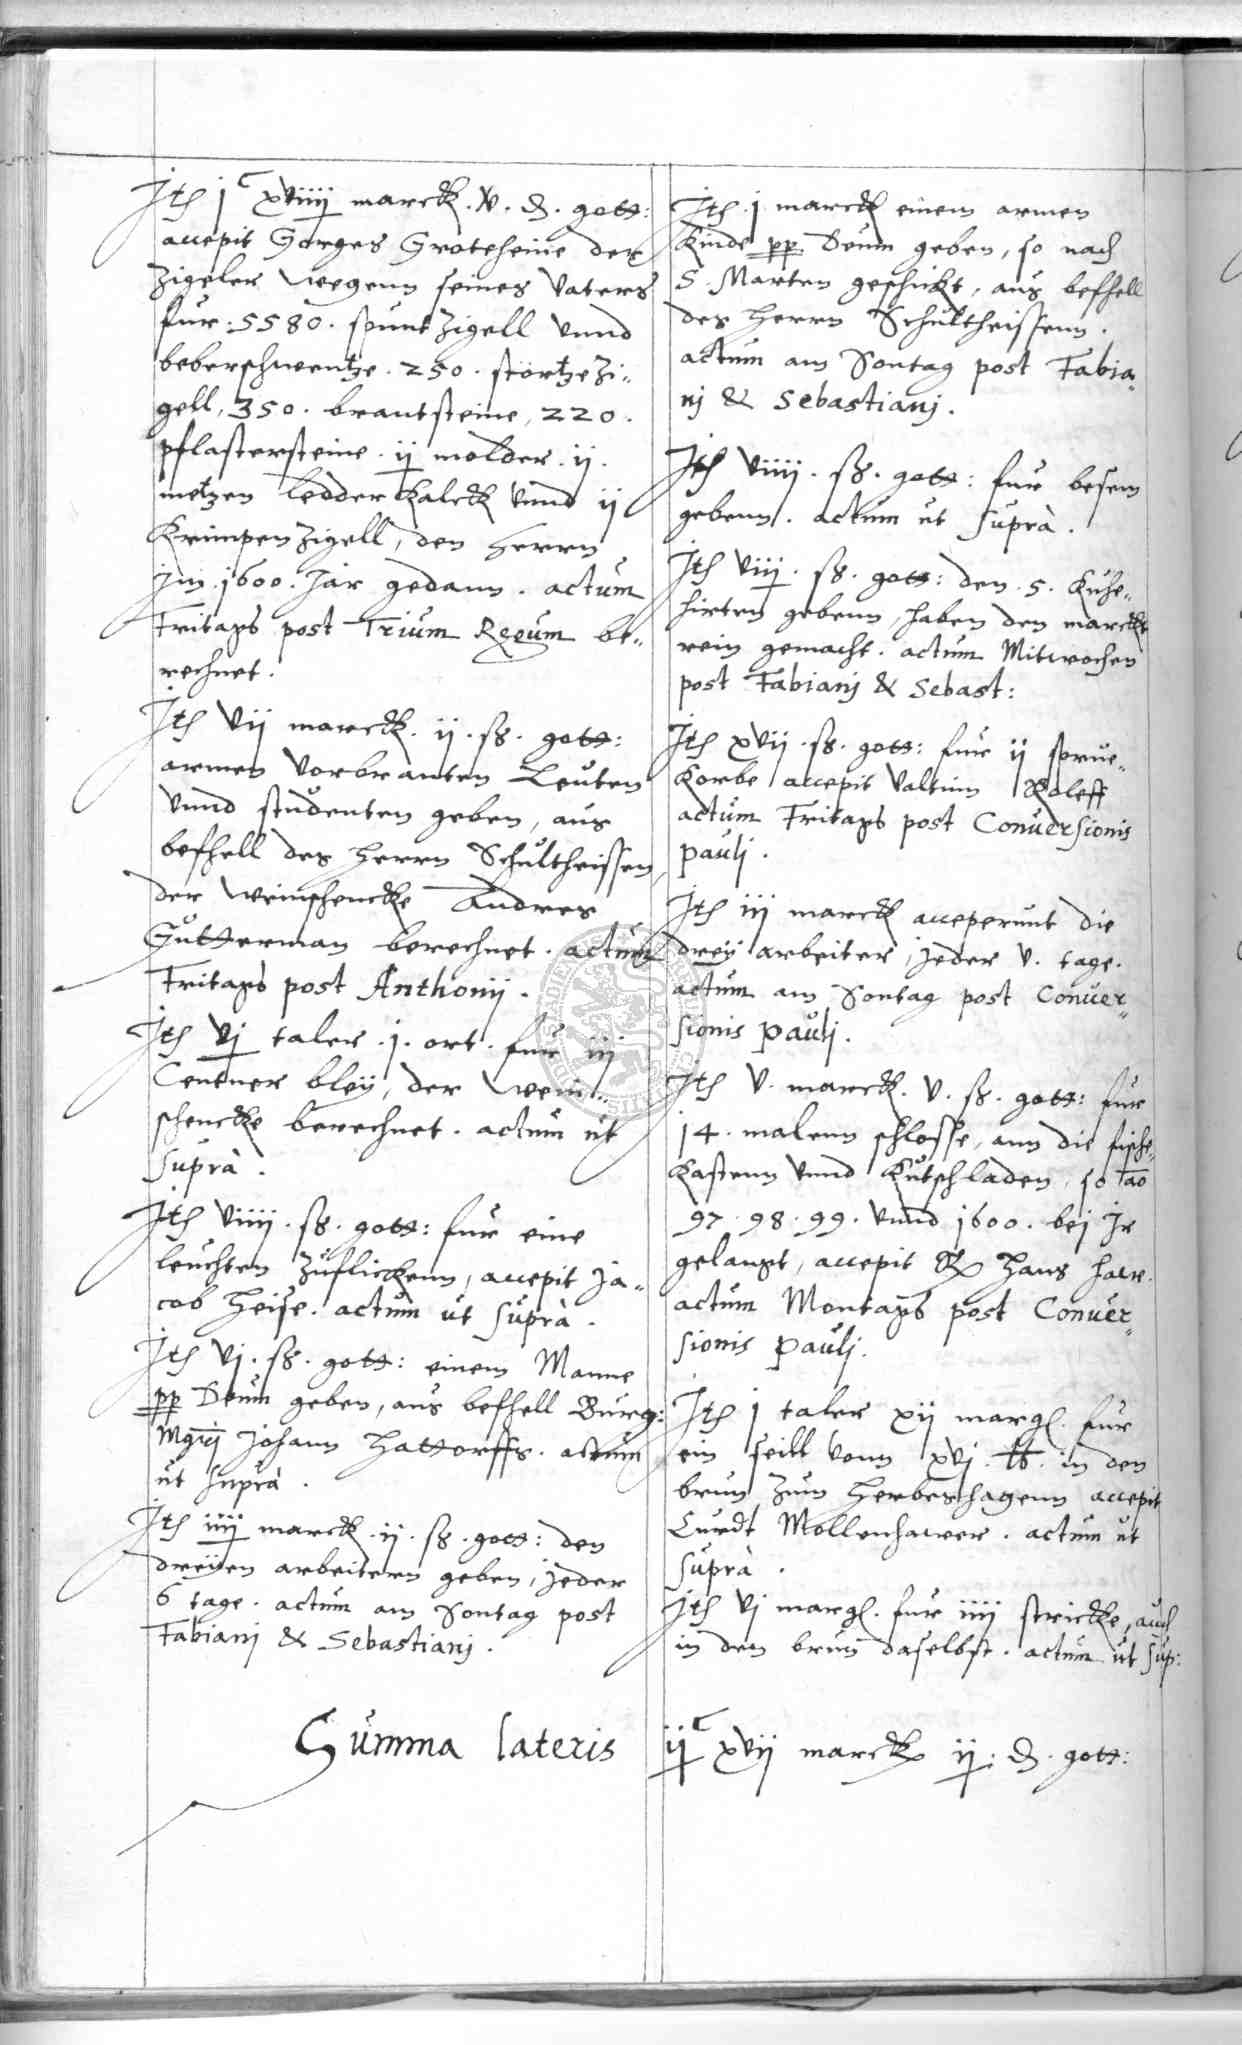 Jt(em) j C xviiij marck. v. d. gott:
accepit Gorges Groteheine der
Zigeler wegenn seines Vaters
fur. 5580. spunt Zigell vnnd
beberschwentze. 250. störtze Zi„
gell, 350. brantsteine, 220.
pflastersteine. ij molder. ij.
metzen ledder kalck vnnd ij
Krimpen Zigell, den Herrn
jm. 1600. Jar gedann. actum
Fritags post Trium Regum be„
rechnet.
Jt(em) vij marck. ij. ß. gott:
armen vorbranten Leuten
vnnd studenten geben, aus
befhell des Herrn Schultheissen,
der weinschencke Andres
Gutterman berechnet. actum
Fritags post Anthonij.
Jt(em) vj taler. j. ort. fur iij
Centner bleÿ, der wein„
schencke berechnet. actum ut
suprà.
Jt(em) viiij. ß. gott: fur eine
leuchten zuflickenn, accepit Ja„
cob Heise. actum ut suprà.
Jt(em) vj. ß. gott: einem Manne
pp Deum geben, aus befhell Burg:
Mgrj Johann Hattorffs. actum
ut suprà.
Jt(em) iiij marck. ij. ß. gott: den
dreÿen arbeitern geben, jeder
6 tage. actum am Sontag post
Fabianj & Sebastianj.
Jt(em). j. marck einem armen
Kinde pp Deum geben, so nach
S. Marten geschickt, aus befhell
des Herrn Schultheissenn.
actum am Sontag post Fabia„
nj & Sebastianj.
Jt(em) viiij. ß. gott: fur besem
gebenn. actum ut suprà.
Jt(em) viij. ß. gott: den. 5. Kuhe„
hirten gebenn, haben den marckt
rein gemacht. actum Mitwochen
post Fabianj & Sebast:
Jt(em) xvij. ß. gott: fur ij sprue„
Korbe accepit Valtinn Roleff
actum Fritags post Conuersionis
pauli.
Jt(em) iij marck acceperunt die
dreÿ arbeiter, jeder v. tage.
actum am Sontag post Conuer„
sionis pauli.
Jt(em) v. marck. v. ß. gott: fur
14. malenn schlosse, ann die fische„
Kastenn vnnd Kutschladen, so ao
97. 98. 99. vnnd 1600. bei Jr
gelangt, accepit Hans
actum Montags post Conuer„
sionis pauli.
Jt(em) j taler xij margl. fur
ein seill vonn xvj. lb. in den
brun zum Herbershagenn accepit
Curdt Mollenhawer. actum ut
suprà.
Jt(em) vj margl. fur iiij stricke, auch
in den brun daselbst. actum ut sup:
Summa lateris ij C xvij marck ij. d. gott: